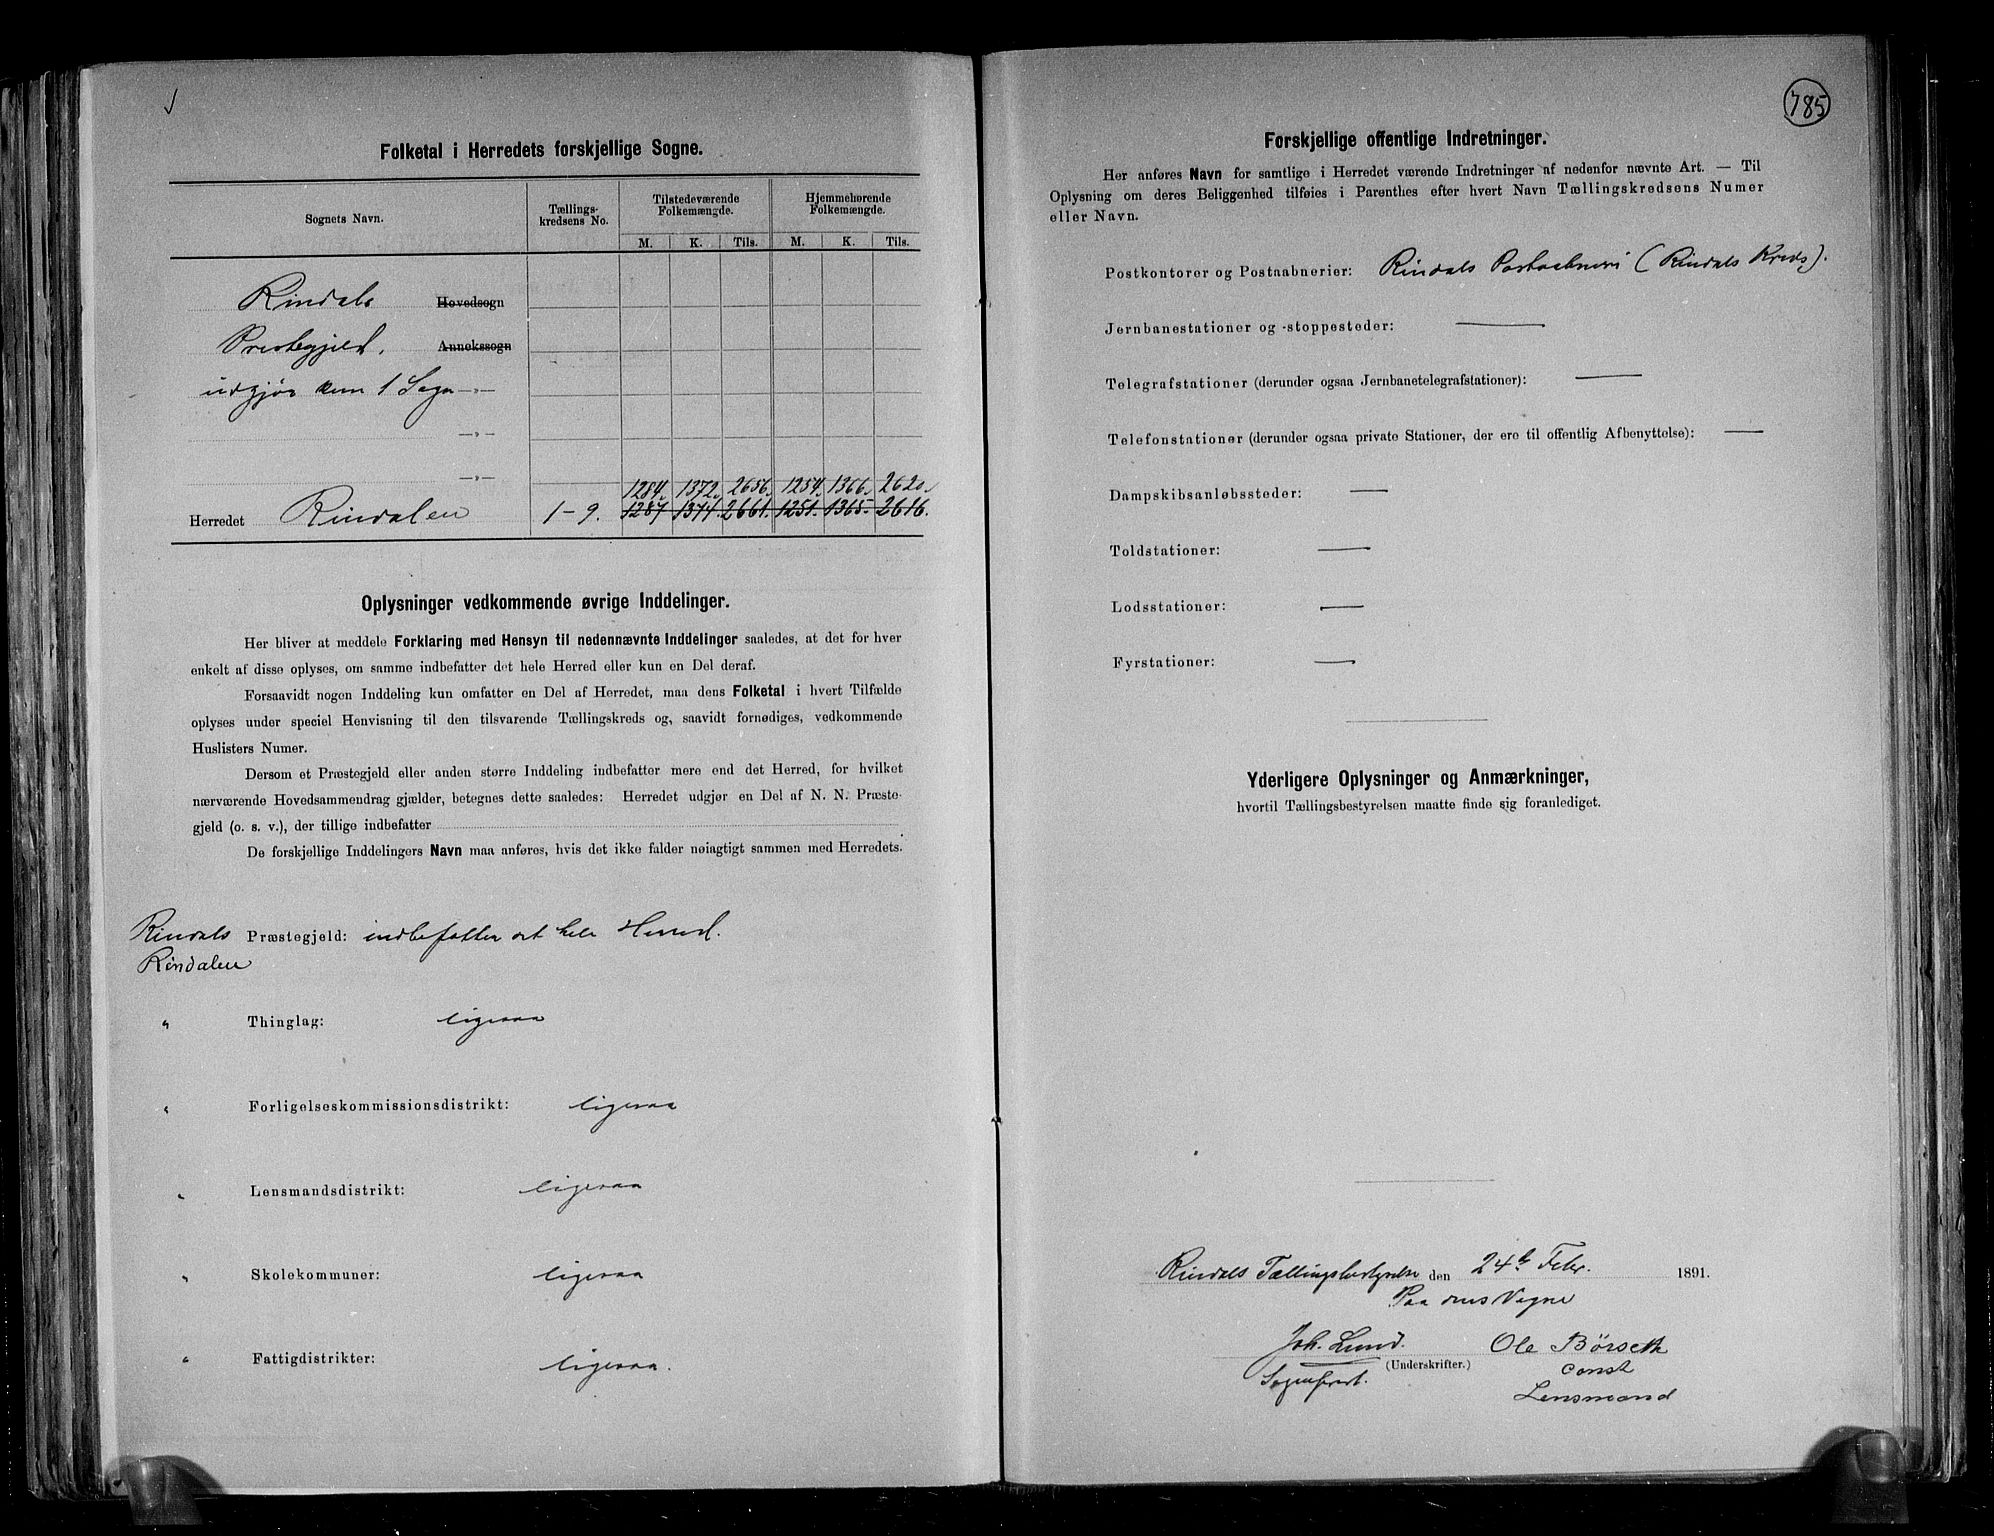 Folketal i Herredets forskjellige Sogne.
Sognets Navn.
Tællings-
kredsens No.
Tilstedeværende
Folkemængde.
Hjemmehørende
Folkemængde.
M. K. Tils. M. K. Tils.
Rindals Hovedsogn
Prestegjeld. Annekssogn
udgjør kun 1 Sogn —„—
—„—
—„—
1284. 1372. 2656. 1254. 1366. 2620.
Herredet Rindalen 1-9. 1287 1374. 2661. 1251. 1365. 2616.
Oplysninger vedkommende øvrige Inddelinger.
Her bliver at meddele Forklaring med Hensyn til nedennævnte Inddelinger saaledes, at det for hver
enkelt af disse oplyses, om samme indbefatter det hele Herred eller kun en Del deraf.
Forsaavidt nogen Inddeling kun omfatter en Del af Herredet, maa dens Folketal i hvert Tilfælde
oplyses under speciel Henvisning til den tilsvarende Tællingskreds og, saavidt fornødiges, vedkommende
Huslisters Numer.
Dersom et Præstegjeld eller anden større Inddeling indbefatter mere end det Herred, for hvilket
nærværende Hovedsammendrag gjælder, betegnes dette saaledes: Herredet udgjør en Del af N. N. Præste-
gjeld (o. s. v.), der tillige indbefatter
De forskjellige Inddelingers Navn maa anføres, hvis det ikke falder nøiagtigt sammen med Herredets.
Rindals Præstegjeld: indbefatter det hele Herred.
Rindalen
„ Thinglag: ligesaa
„ Forligelseskommissionsdistrikt: ligesaa
„ Lensmandsdistrikt: ligesaa
„ Skolekommuner: ligesaa
„ Fattigdistrikter: ligesaa.
785
Forskjellige offentlige Indretninger.
Her anføres Navn for samtlige i Herredet værende Indretninger af nedenfor nævnte Art. — Til
Oplysning om deres Beliggenhed tilføies i Parenthes efter hvert Navn Tællingskredsens Numer
eller Navn.
Postkontorer og Postaabnerier: Rindals Postaabneri (Rindals Kreds).
Jernbanestationer og -stoppesteder: —
Telegrafstationer (derunder ogsaa Jernbanetelegrafstationer): —
Telefonstationer (derunder ogsaa private Stationer, der ere til offentlig Afbenyttelse): —
Dampskibsanløbssteder: —
Toldstationer: —
Lodsstationer: —
Fyrstationer: —
Yderligere Oplysninger og Anmærkninger,
hvortil Tællingsbestyrelsen maatte finde sig foranlediget.
Rindals Tællingsbestyrelse den 24de Febr. 1891.
Paa dens Vegne
Joh. Lund. Ole Børseth
(Underskrifter.)
Sogneprest. const
Lensmand